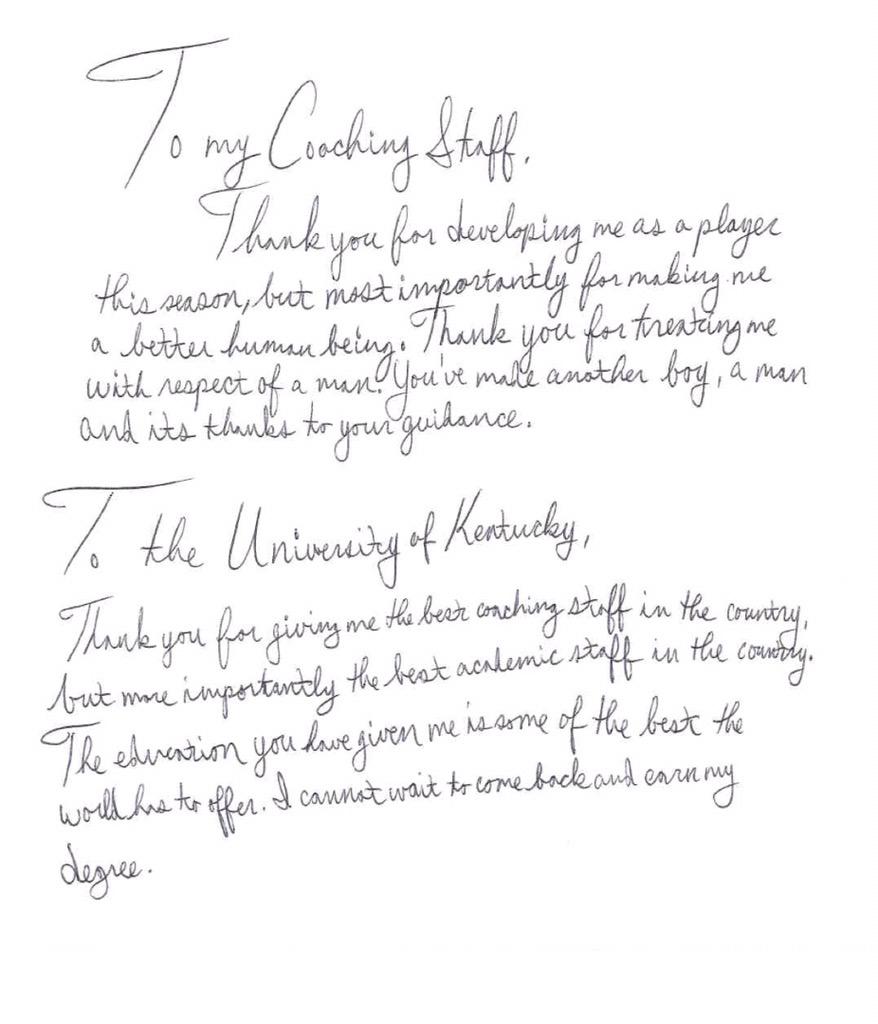 To my Coaching Staff,
Thank you for developing me as a player
this season, but most importantly for making me
a better human being. Thank you for treating me
with respect of a man. You've made another boy, a man
and its thanks to your guidance.
To the University of Kentucky,
Thank you for giving me the best coaching staff in the country,
but more importantly the best academic staff in the country.
The education you have given me is some of the best the
world has to offer. I cannot wait to come back and earn my
degree.